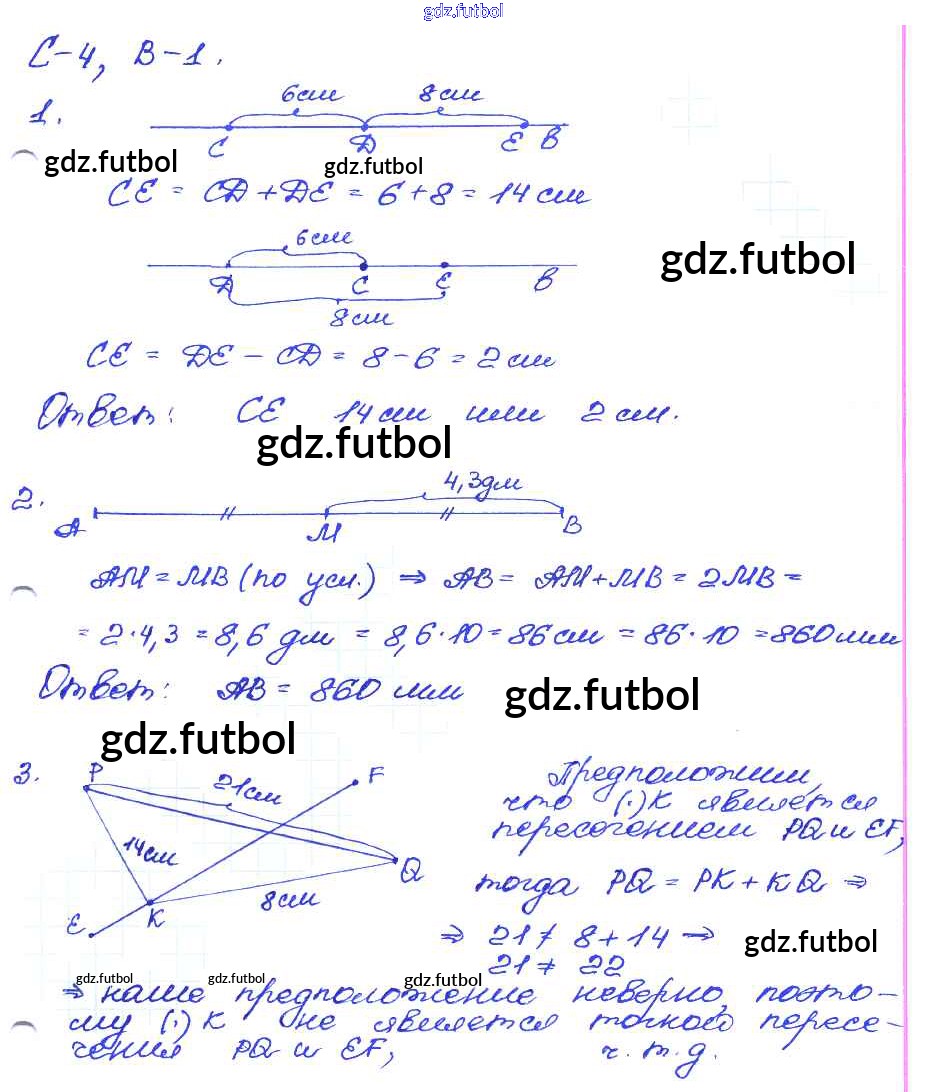 gdz.futbol
С-4, В-1.
1.
6см 8см
C D E B
gdz.futbol gdz.futbol
CE = CD + DE = 6 + 8 = 14 см
6см
gdz.futbol
D C E B
8см
CE = DE - CD = 8 - 6 = 2 см
Ответ: CE 14 см или 2 см.
gdz.futbol
2.
4,3дм
A M B
AM = MB (по усл.) ⇒ AB = AM + MB = 2MB =
= 2·4,3 = 8,6 дм = 8,6·10 = 86 см = 86·10 = 860 мм
Ответ: AB = 860 мм
gdz.futbol
gdz.futbol
3.
P 21см F
14см Q
8см
E K
Предположим,
что (·)K является
пересечением PQ и EF,
тогда PQ = PK + KQ ⇒
⇒ 21 ≠ 8 + 14 ⇒
gdz.futbol
21 ≠ 22
gdz.futbol gdz.futbol gdz.futbol
⇒ наше предположение неверно, поэто-
му (·) K не является точкой пересе-
чения PQ и EF, ч.т.д.